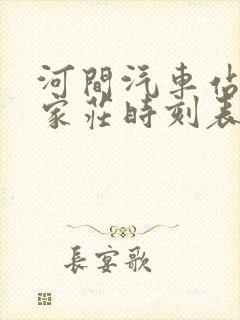 河間汽車佔
家莊時刻表
長宴歌